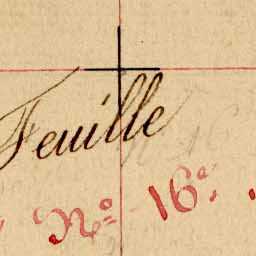 Feuille
Nº 16º.